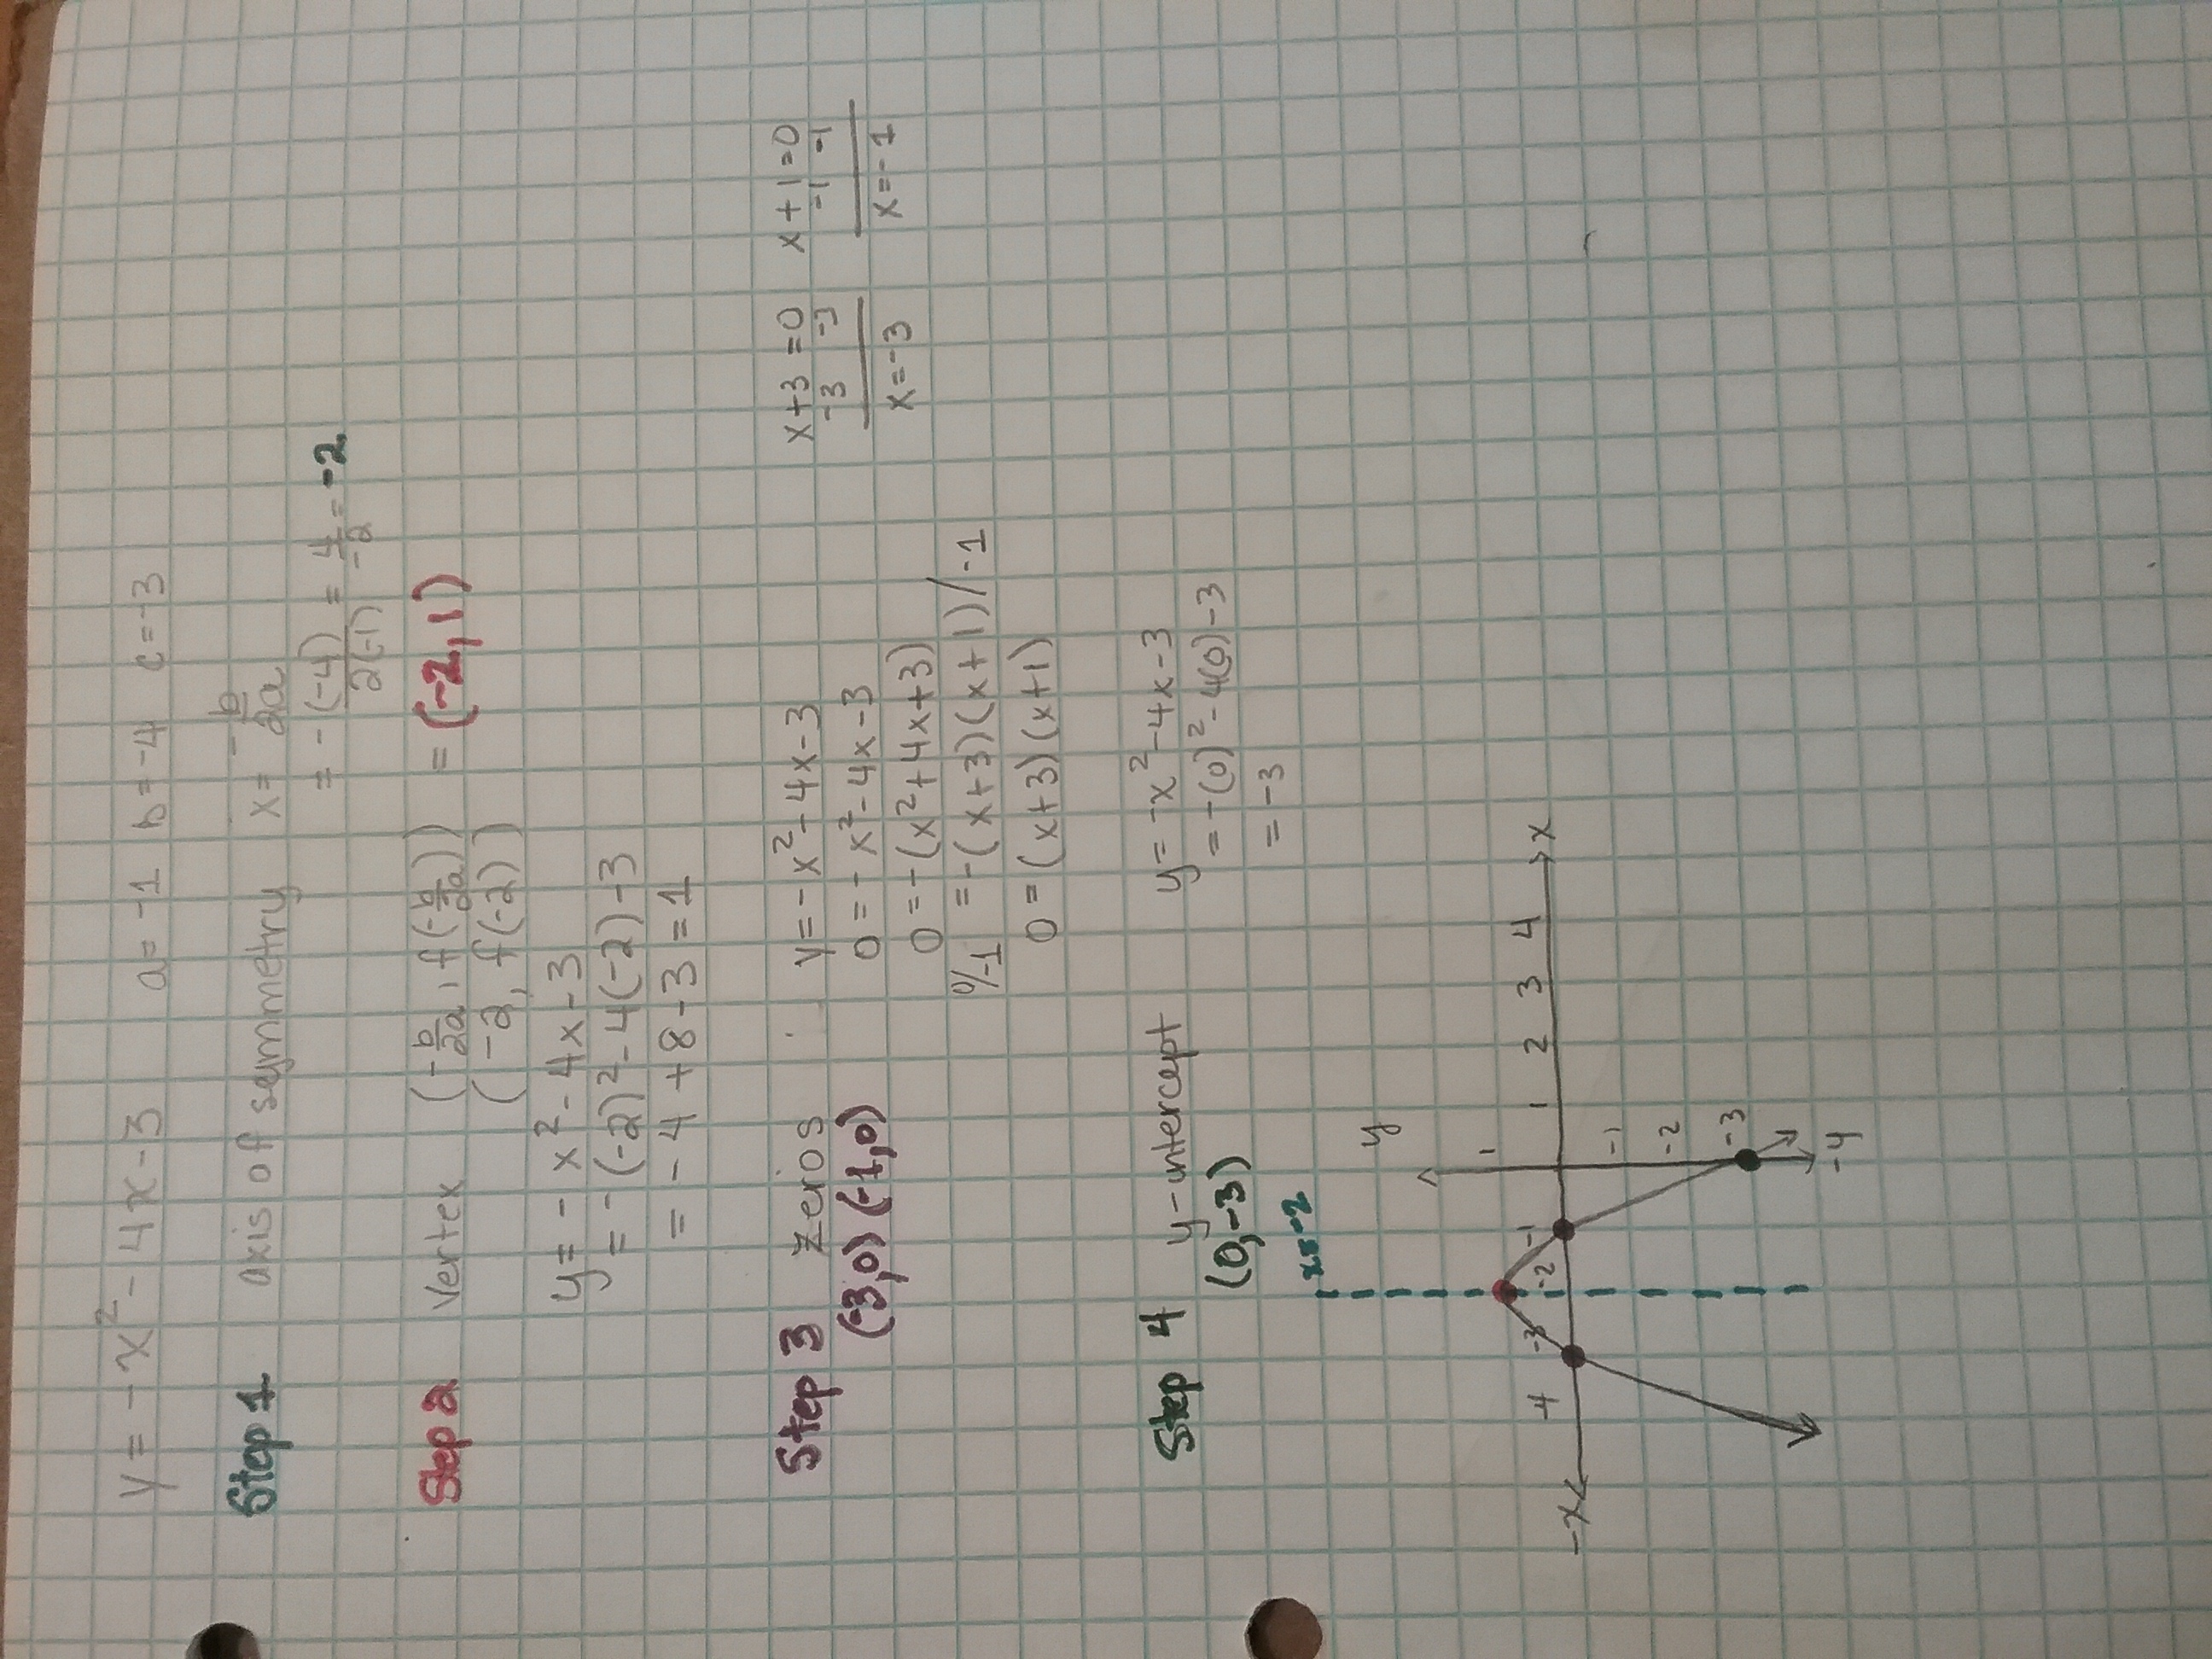 y = -x² - 4x - 3   a = -1   b = -4   c = -3
Step 1   axis of symmetry   x = -b/2a
= -(-4)/2(-1) = 4/-2 = -2
Step 2   Vertex   (-b/2a, f(-b/2a))   = (-2, 1)
(-2, f(-2))
y = -x² - 4x - 3
= -(-2)² - 4(-2) - 3
= -4 + 8 - 3 = 1
Step 3   zerios   y = -x² - 4x - 3   x + 3 = 0   x + 1 = 0
(-3, 0) (-1, 0)   0 = -x² - 4x - 3   -3   -3   -1   -1
0 = -(x² + 4x + 3)   x = -3   x = -1
0/-1 = -(x + 3)(x + 1) / -1
0 = (x + 3)(x + 1)
Step 4   y-intercept   y = -x² - 4x - 3
(0, -3)   = -(0)² - 4(0) - 3
= -3
x = -2
y
1
-x   -4   -3   -2   -1   1   2   3   4   x
-1
-2
-3
-4